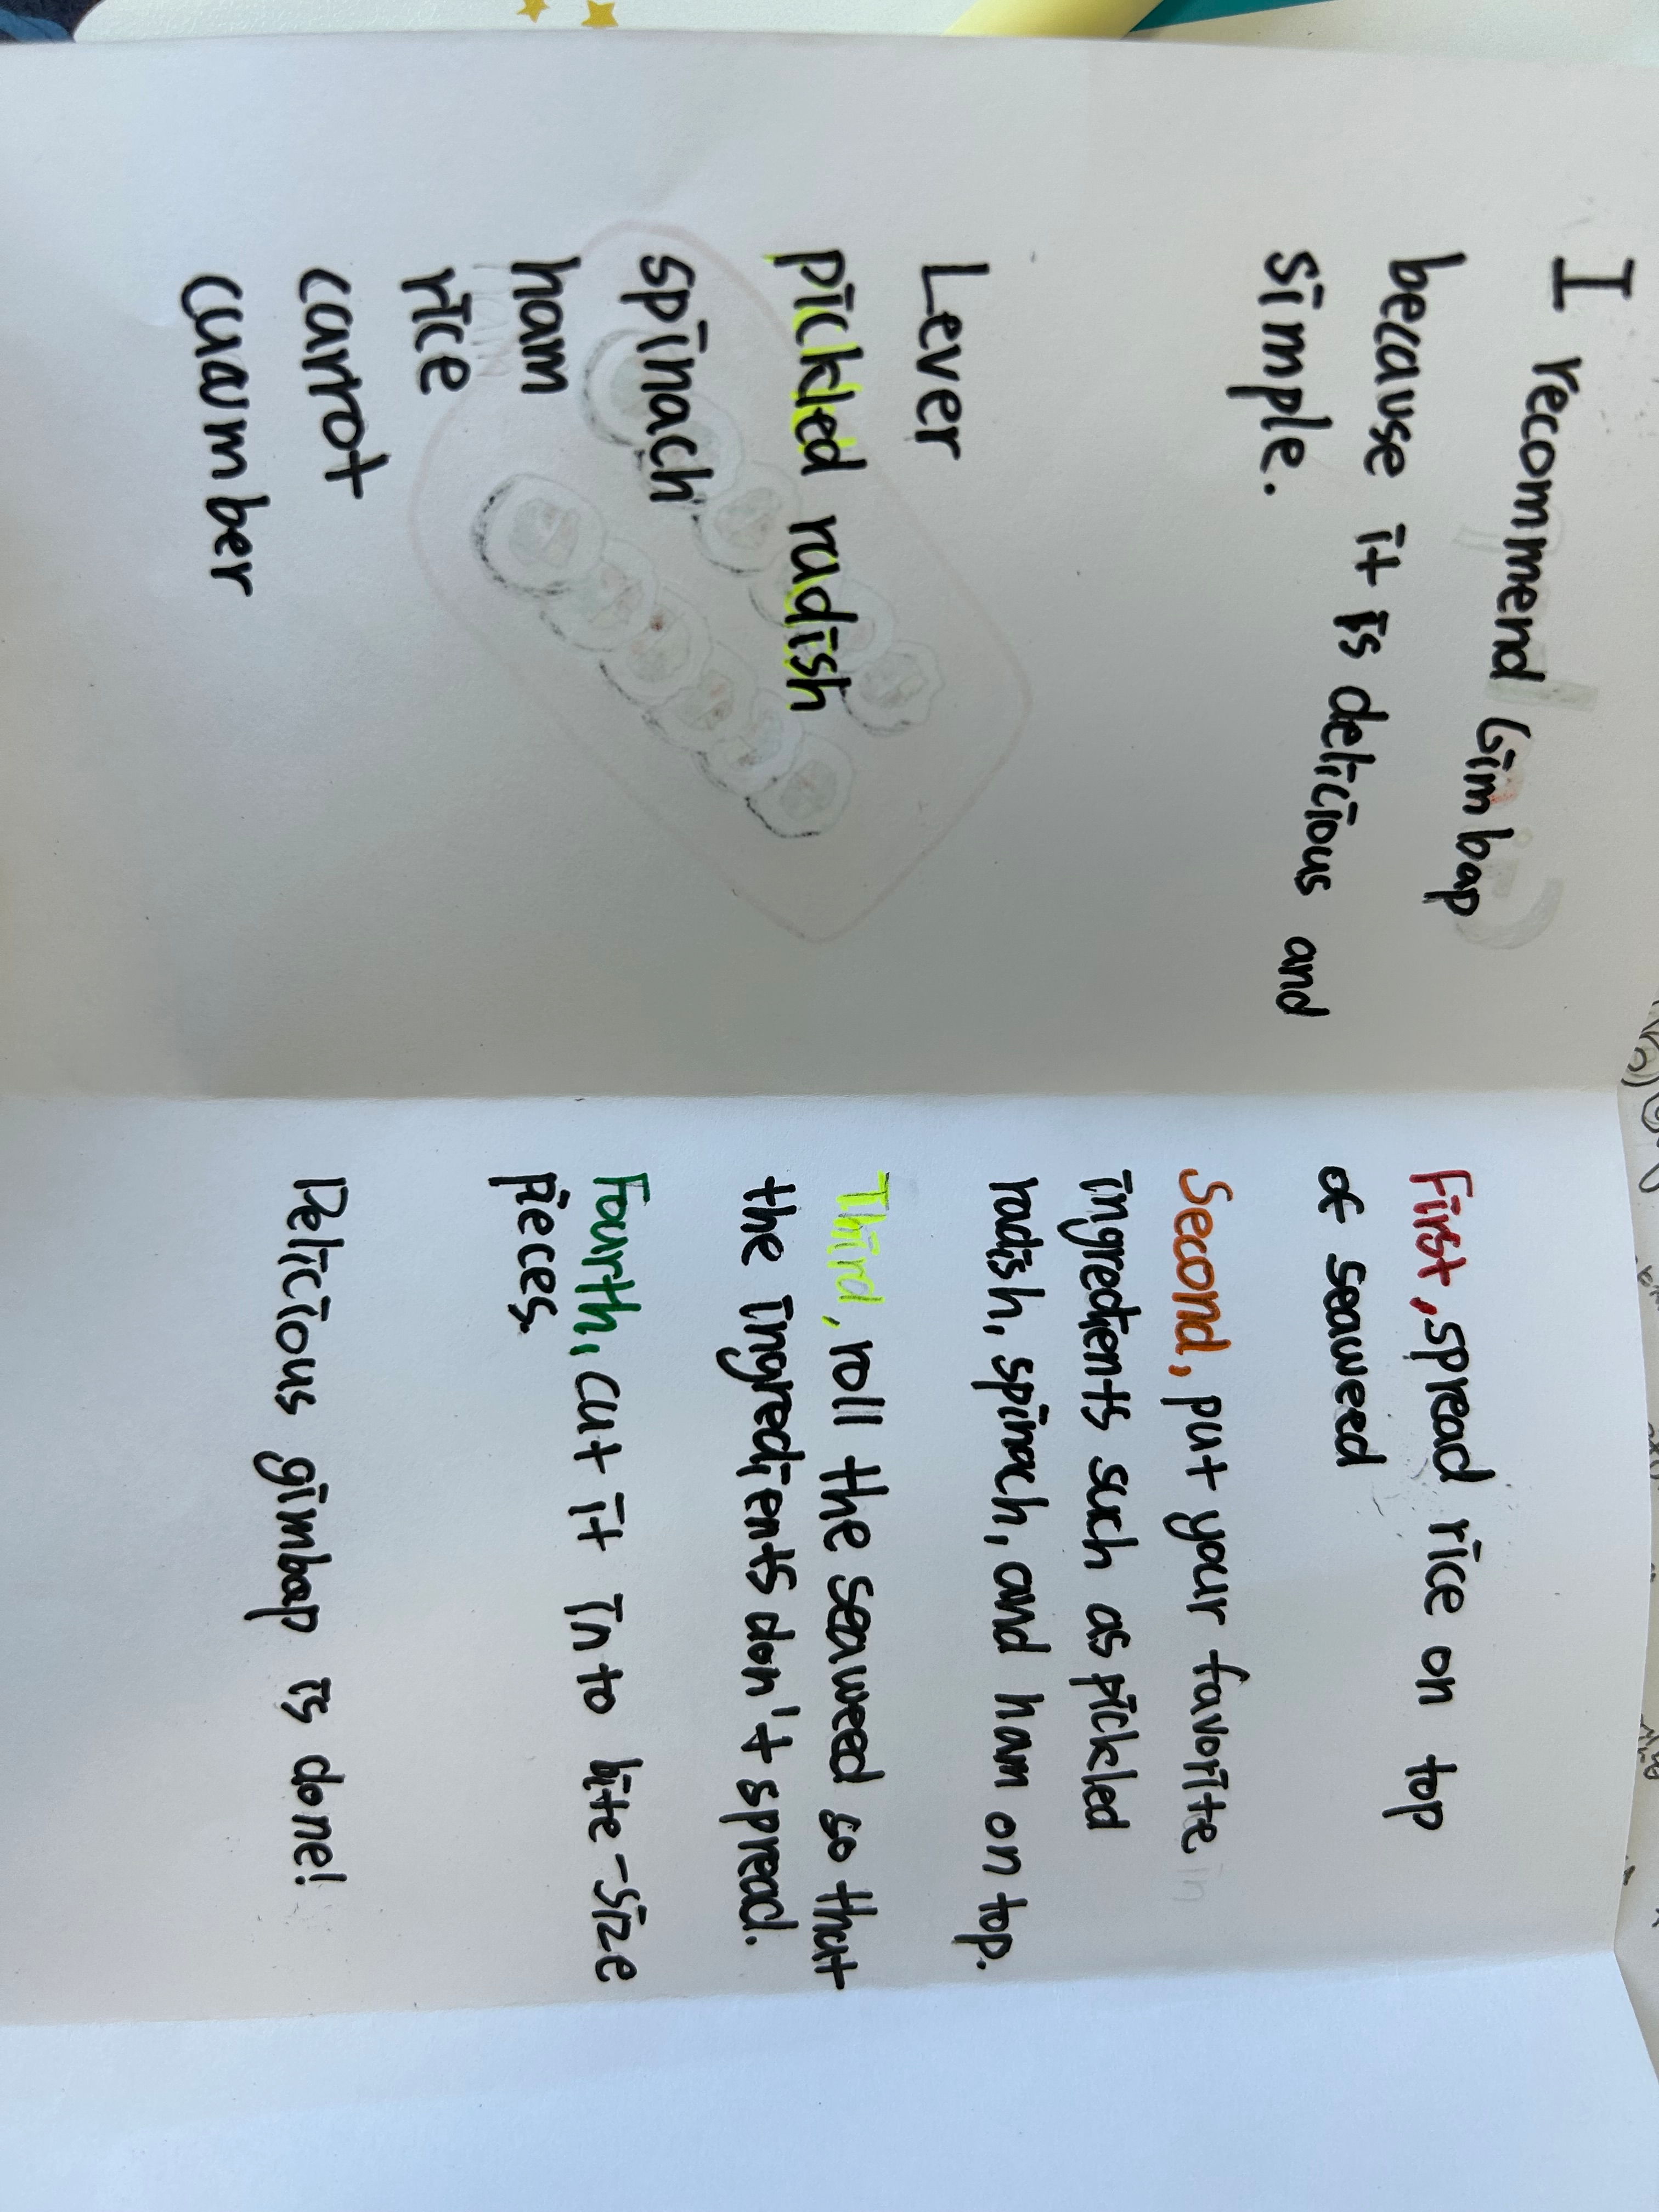 I recommend Gimbap
because it is delicious and
simple.
Lever
pickled radish
spinach
ham
rice
carrot
cucumber
First, spread rice on top
of seaweed
Second, put your favorite in
ingredients such as pickled
radish, spinach, and ham on top.
Third, roll the seaweed so that
the ingredients don't spread.
Fourth, cut it into bite-size
pieces.
Delicious gimbap is done!